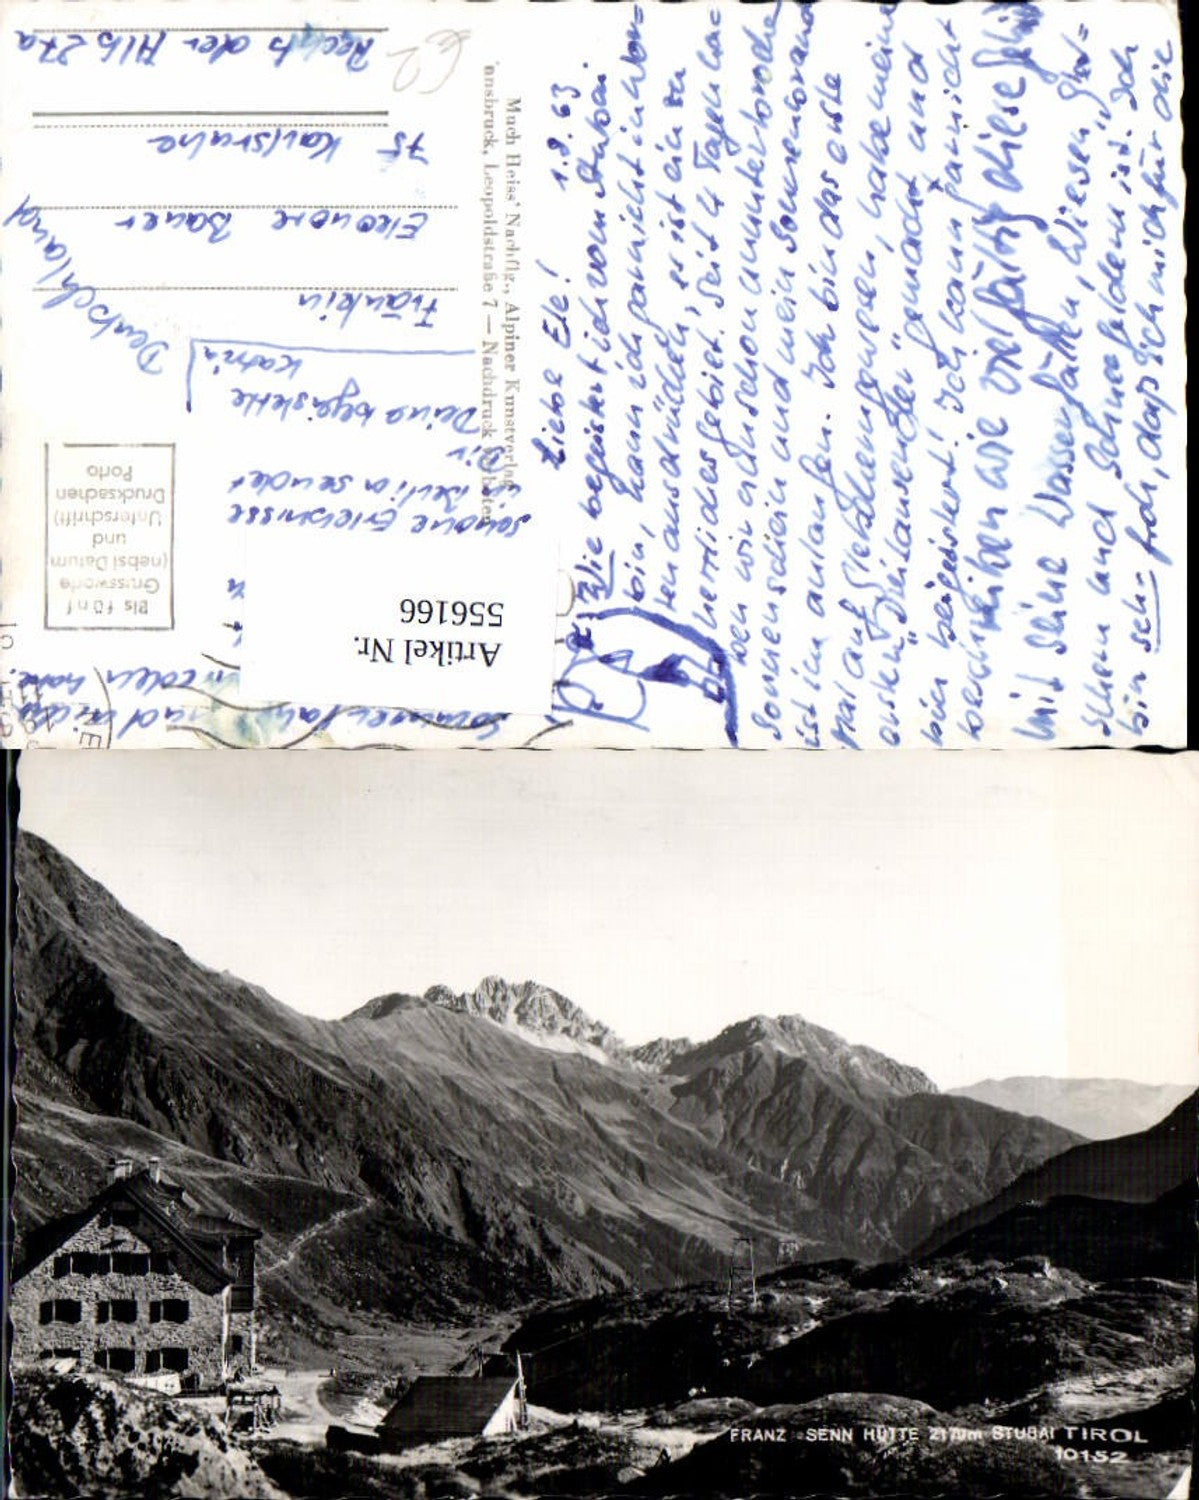 Liebe Ele! 1.8.63
Wie begeistert ich vom Stubai
bin, kann ich garnicht in Wor=
ten ausdrücken, es ist ein so
herrliches Gebiet. Seit 4 Tagen ha=
ben wir nun schon ununterbrochen
Sonnenschein und mein Sonnenbrand
ist im anlaufen. Ich bin das erste
Mal auf Gletschern gewesen, habe meine
ersten "Dreitausender" gemacht und
bin begeistert! Ich kann garnicht
beschreiben wie vielfältig diese Gebiet
mit seine Wasserfällen, Wiesen, Glet=
schern und Schneefeldern ist. Ich
bin sehr froh, daß ich mich für die
und
in Edlen habe.
schöne Erlebnisse
sendet
Dir
Deine begeisterte
Katrin
Fräulein
Eleonore Bauer
75 Karlsruhe
Rechts der Alb 27a
Deutschland
Much Heiss' Nachflg., Alpiner Kunstverlag
Innsbruck, Leopoldstraße 7 — Nachdruck verboten
Bis fünf
Grussworte
(nebst Datum
und
Unterschrift)
Drucksachen
Porto
Artikel Nr.
556166
FRANZ SENN HÜTTE 2170m STUBAI TIROL
10152